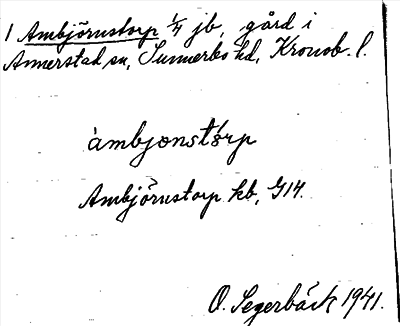 1 Ambjörnstorp 1/4 jb, gård i
Annerstad sn, Sunnerbo hd, Kronob. l.
àmbjœnstórp
Ambjörnstorp kb, G14.
O. Segerbäck 1941.